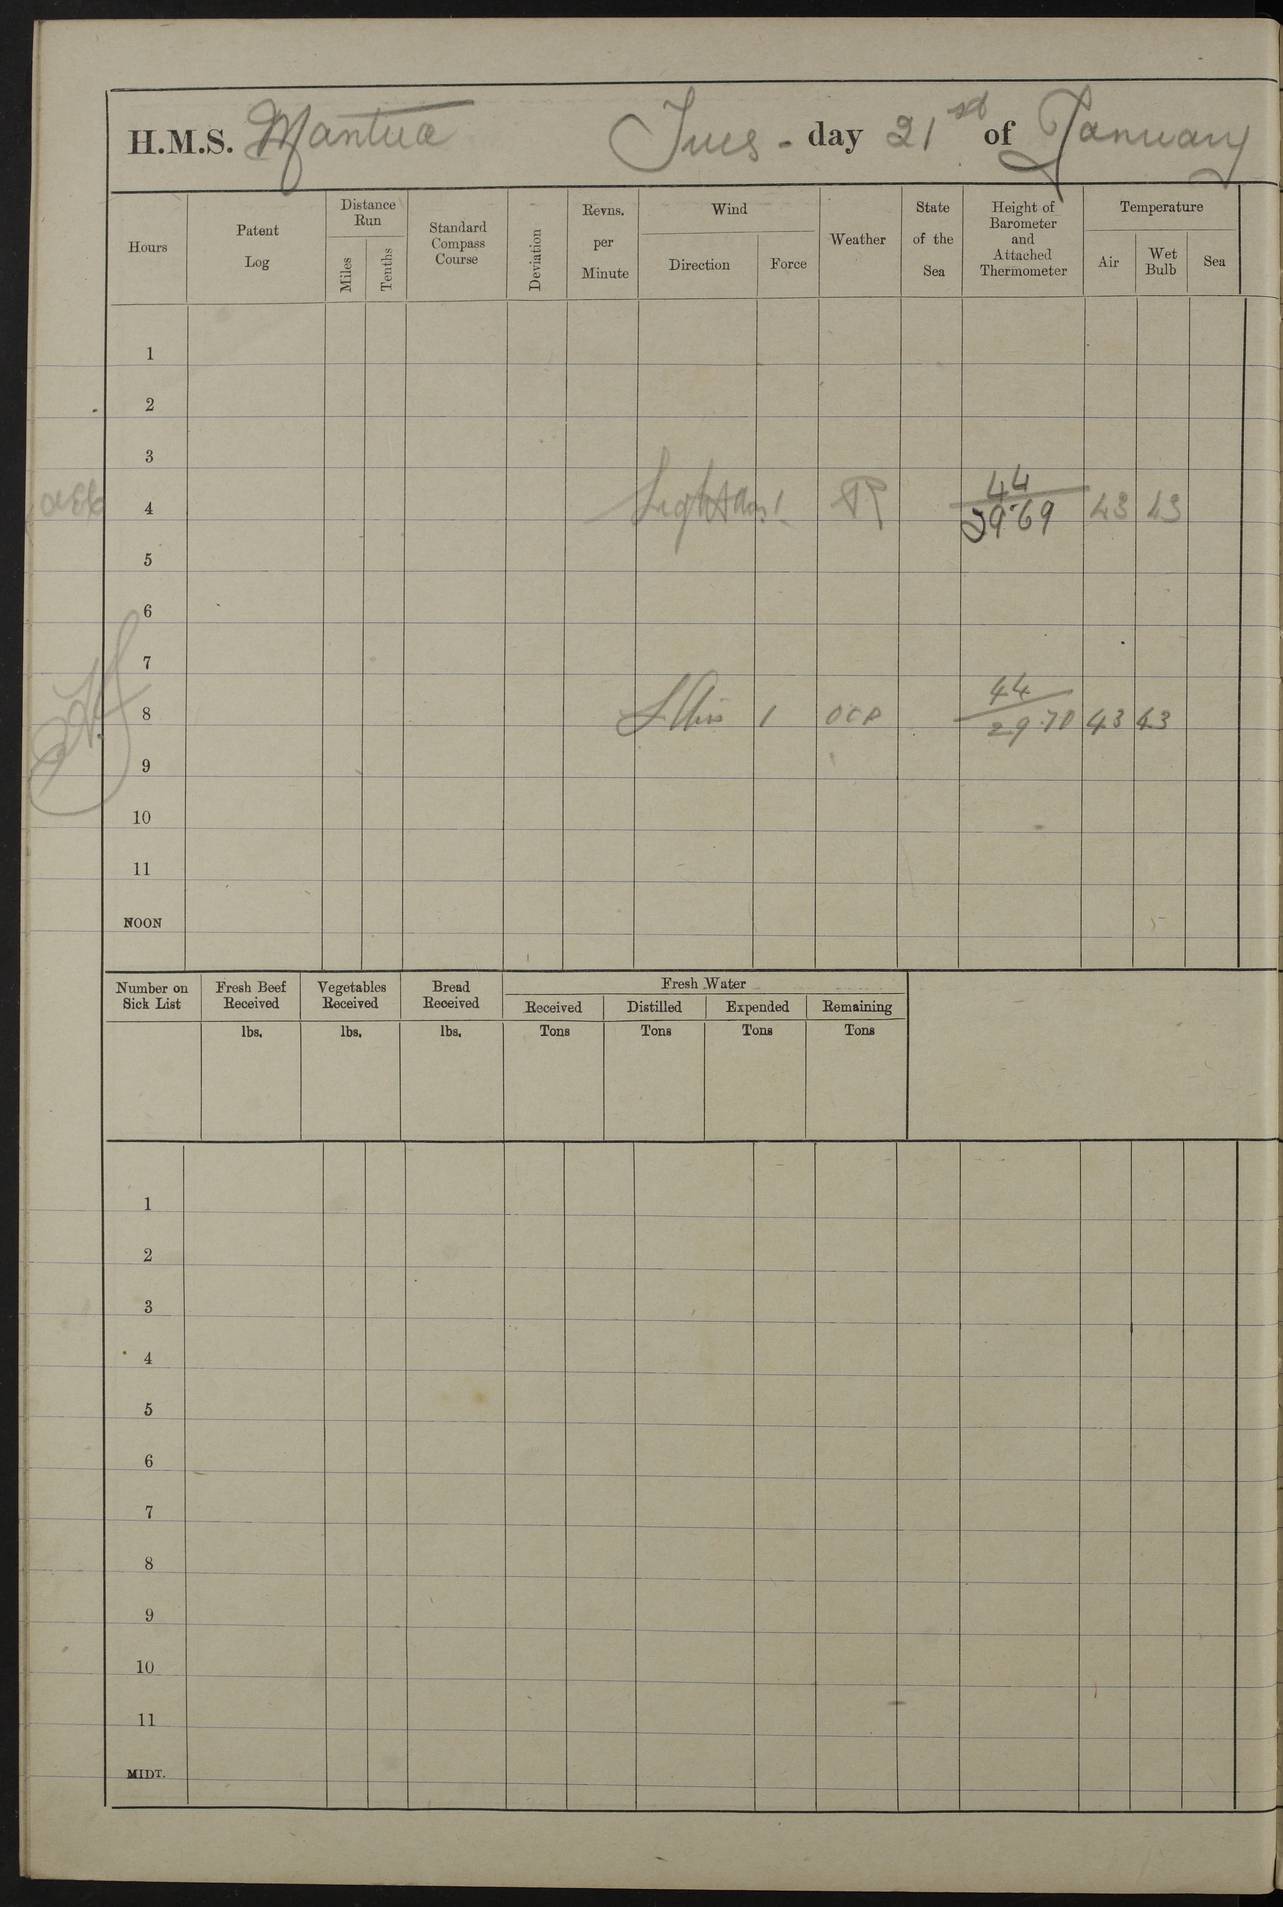 H.M.S. Mantua Tues - day 21st of January
Hours
Patent Log
Distance Run
Miles
Tenths
Standard Compass Course
Deviation
Revns. per Minute
Wind
Direction
Force
Weather
State of the Sea
Height of Barometer and Attached Thermometer
Temperature
Air
Wet Bulb
Sea
1
2
3
44
4 Light Airs 1 29.69 43 43
5
6
7
44
8 L Airs 1 29.70 43 43
9
10
11
NOON
Number on Sick List
Fresh Beef Received
Vegetables Received
Bread Received
Fresh Water
Received
Distilled
Expended
Remaining
lbs. lbs. lbs. Tons Tons Tons Tons
1
2
3
4
5
6
7
8
9
10
11
MIDT.